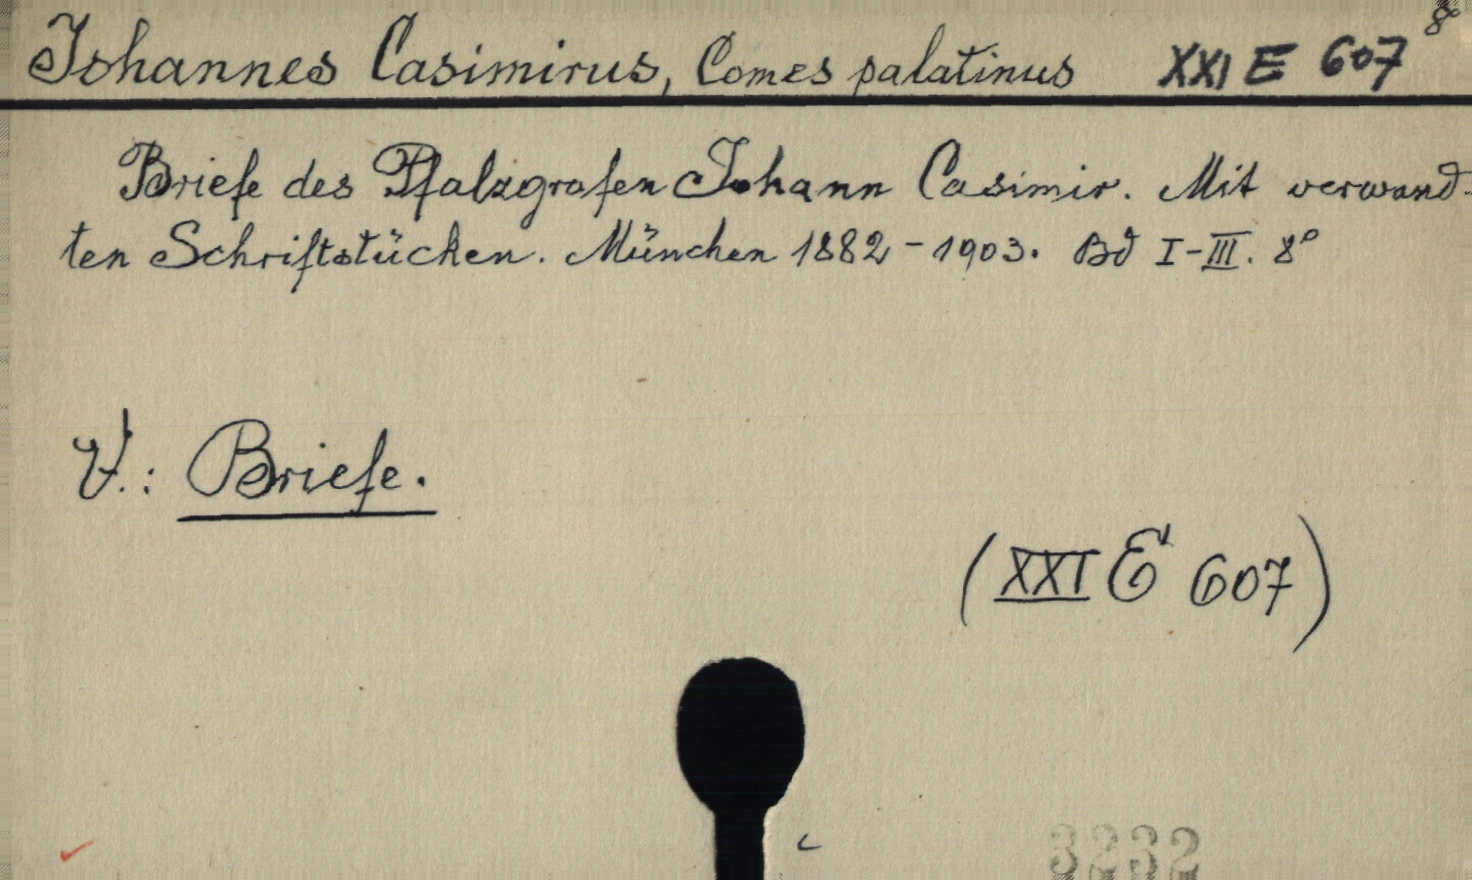 Johannes Casimirus, Comes palatinus XXI E 607 8
Briefe des Pfalzgrafen Johann Casimir. Mit verwand-
ten Schriftstücken. München 1882-1903. Bd I-III. 8°
V.: Briefe.
(XXI E 607)
3232